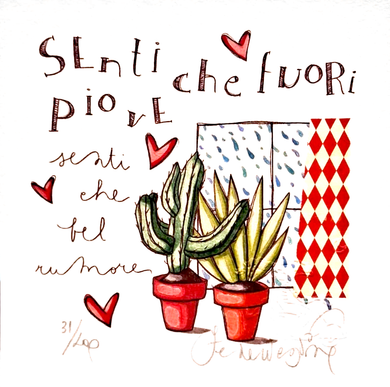 SEnti che fUORi
PIOVE
senti
che
bel
rumore
31/200